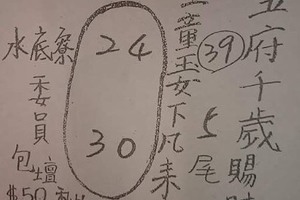 五府千歲賜
39
童玉女下凡來
5尾
24
30
水底寮
委員
包壇
$50